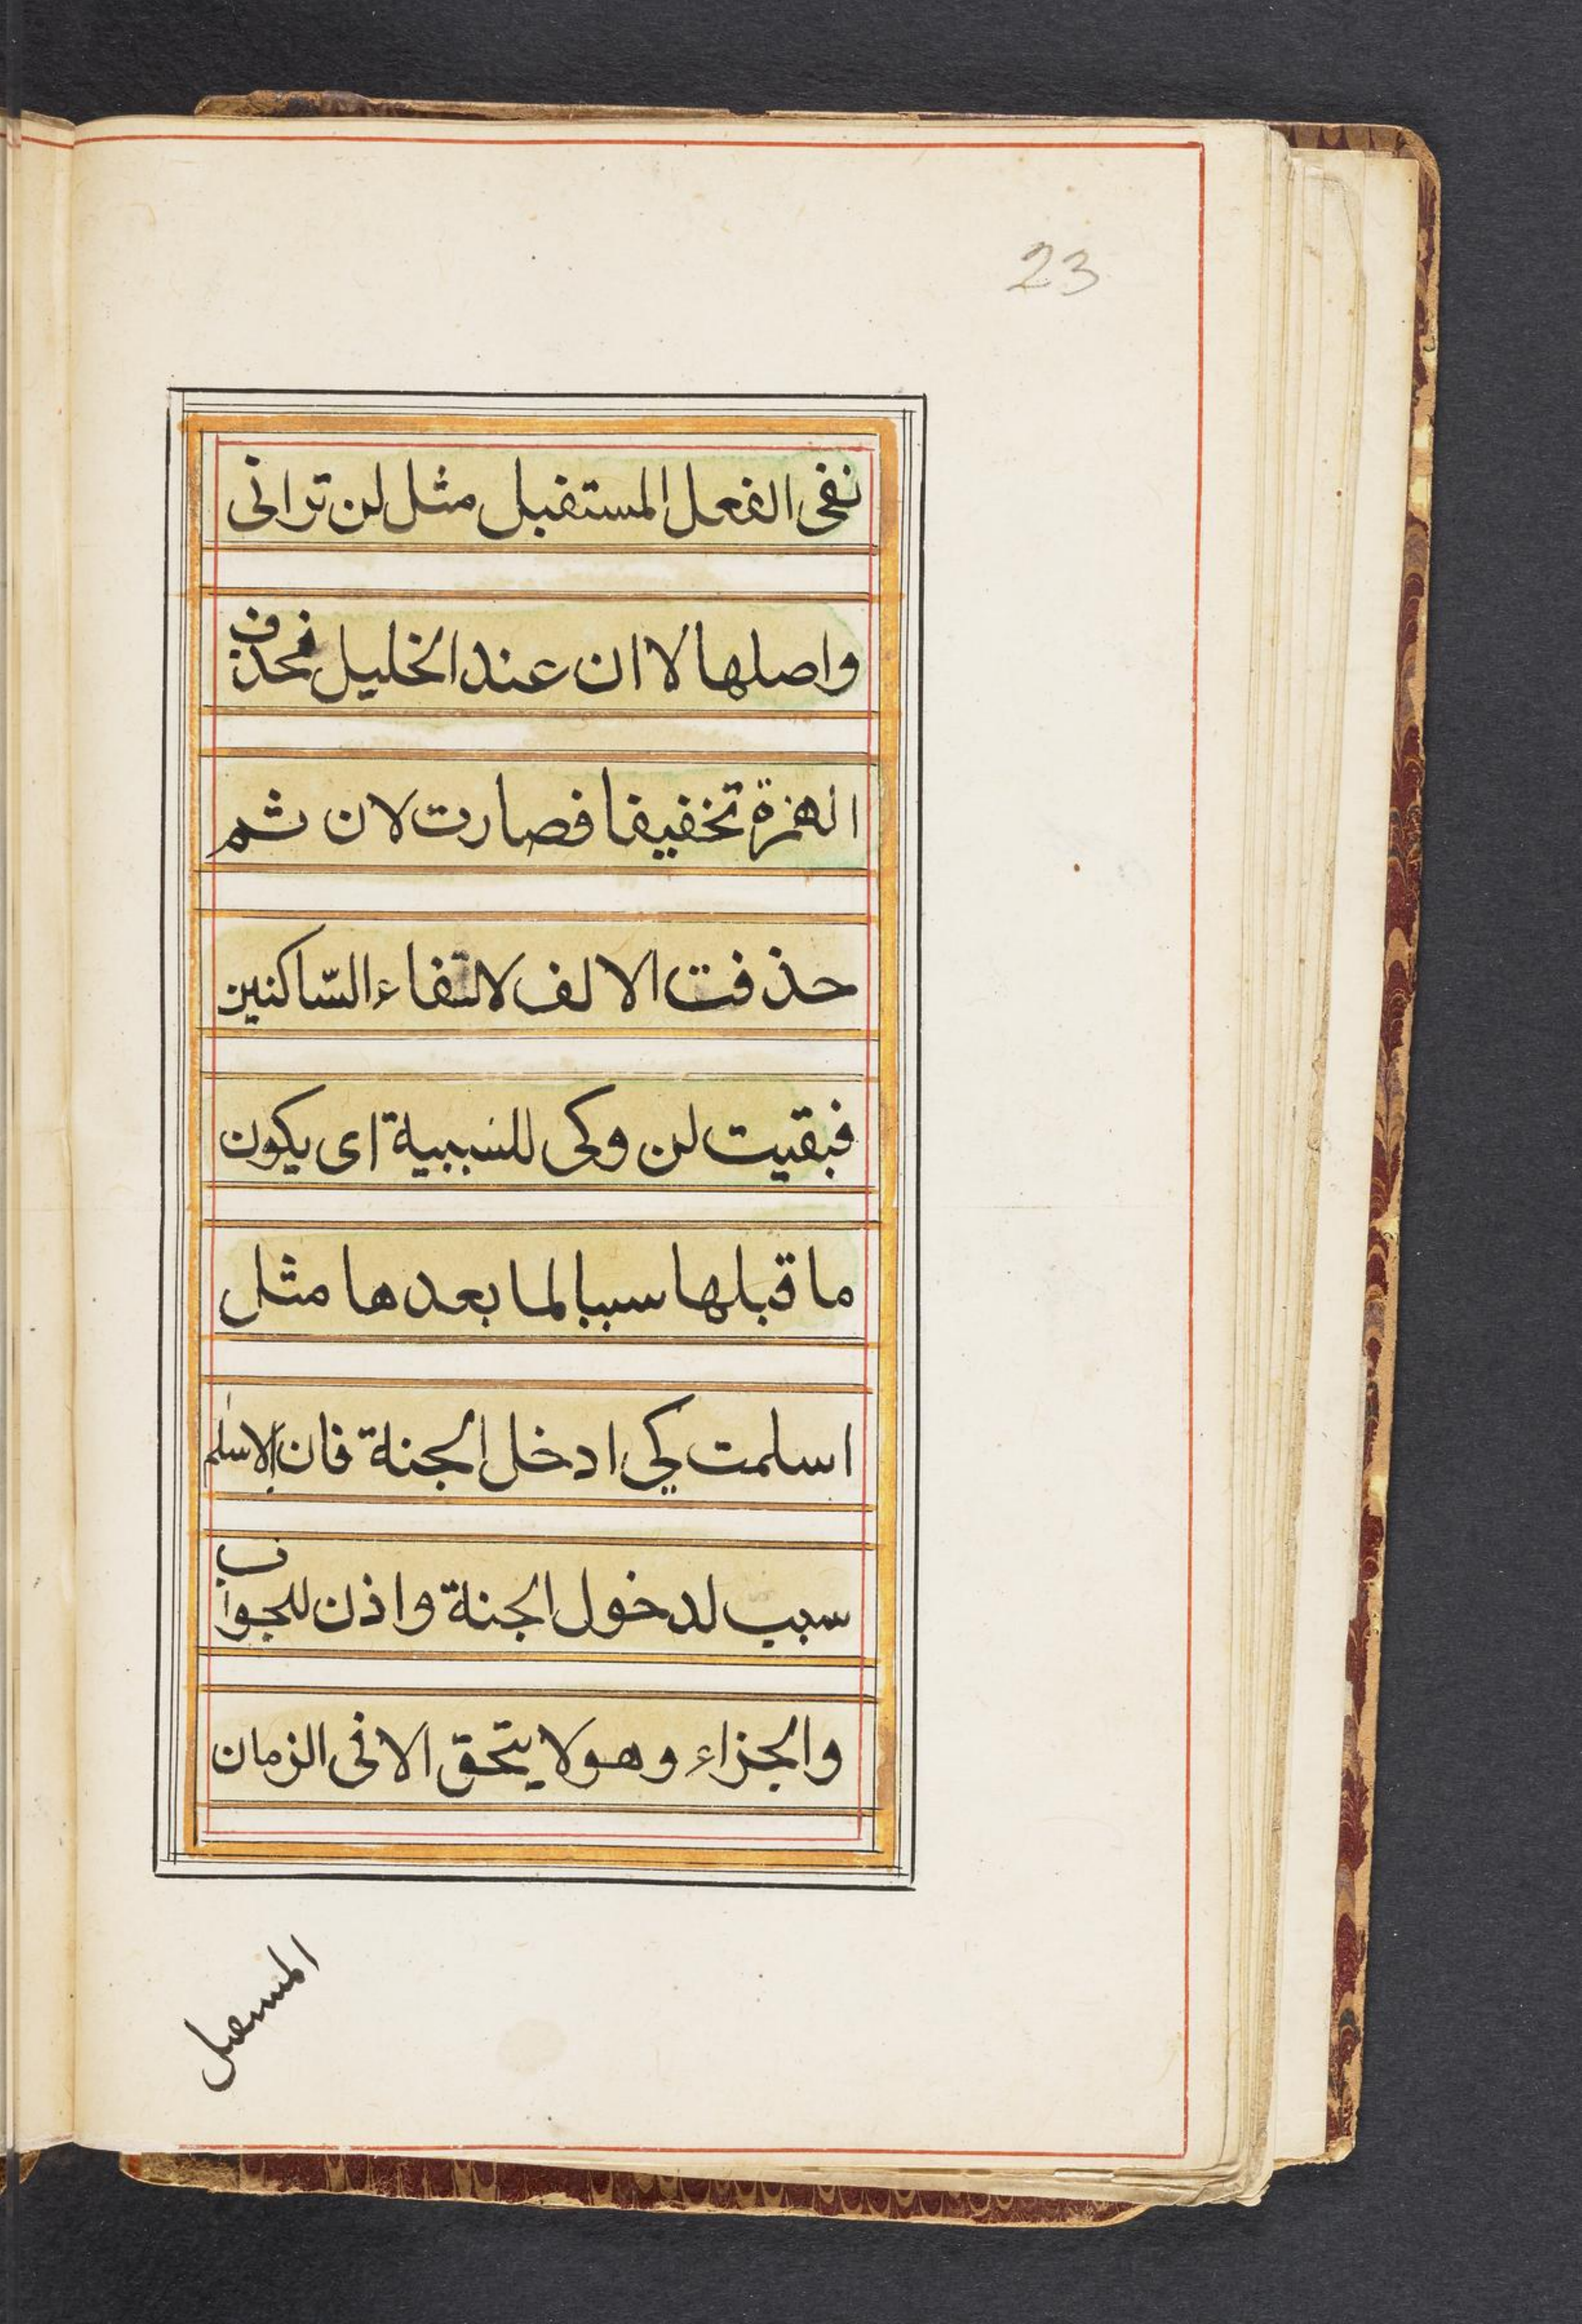 23
نفى الفعل المستقبل مثل لن ترانى
واصلها لا ان عند الخليل فحذف
الهمزة تخفيفا فصارت لان ثم
حذفت الالف لالتقاء السّاكنين
فبقيت لن وكى للسببية اى يكون
ما قبلها سببا لما بعدها مثل
اسلمت كي ادخل الجنة فان الاسلم
سبب لدخول الجنة واذن للجواب
والجزاء وهو لا يتحقق الا فى الزمان
المستقبل